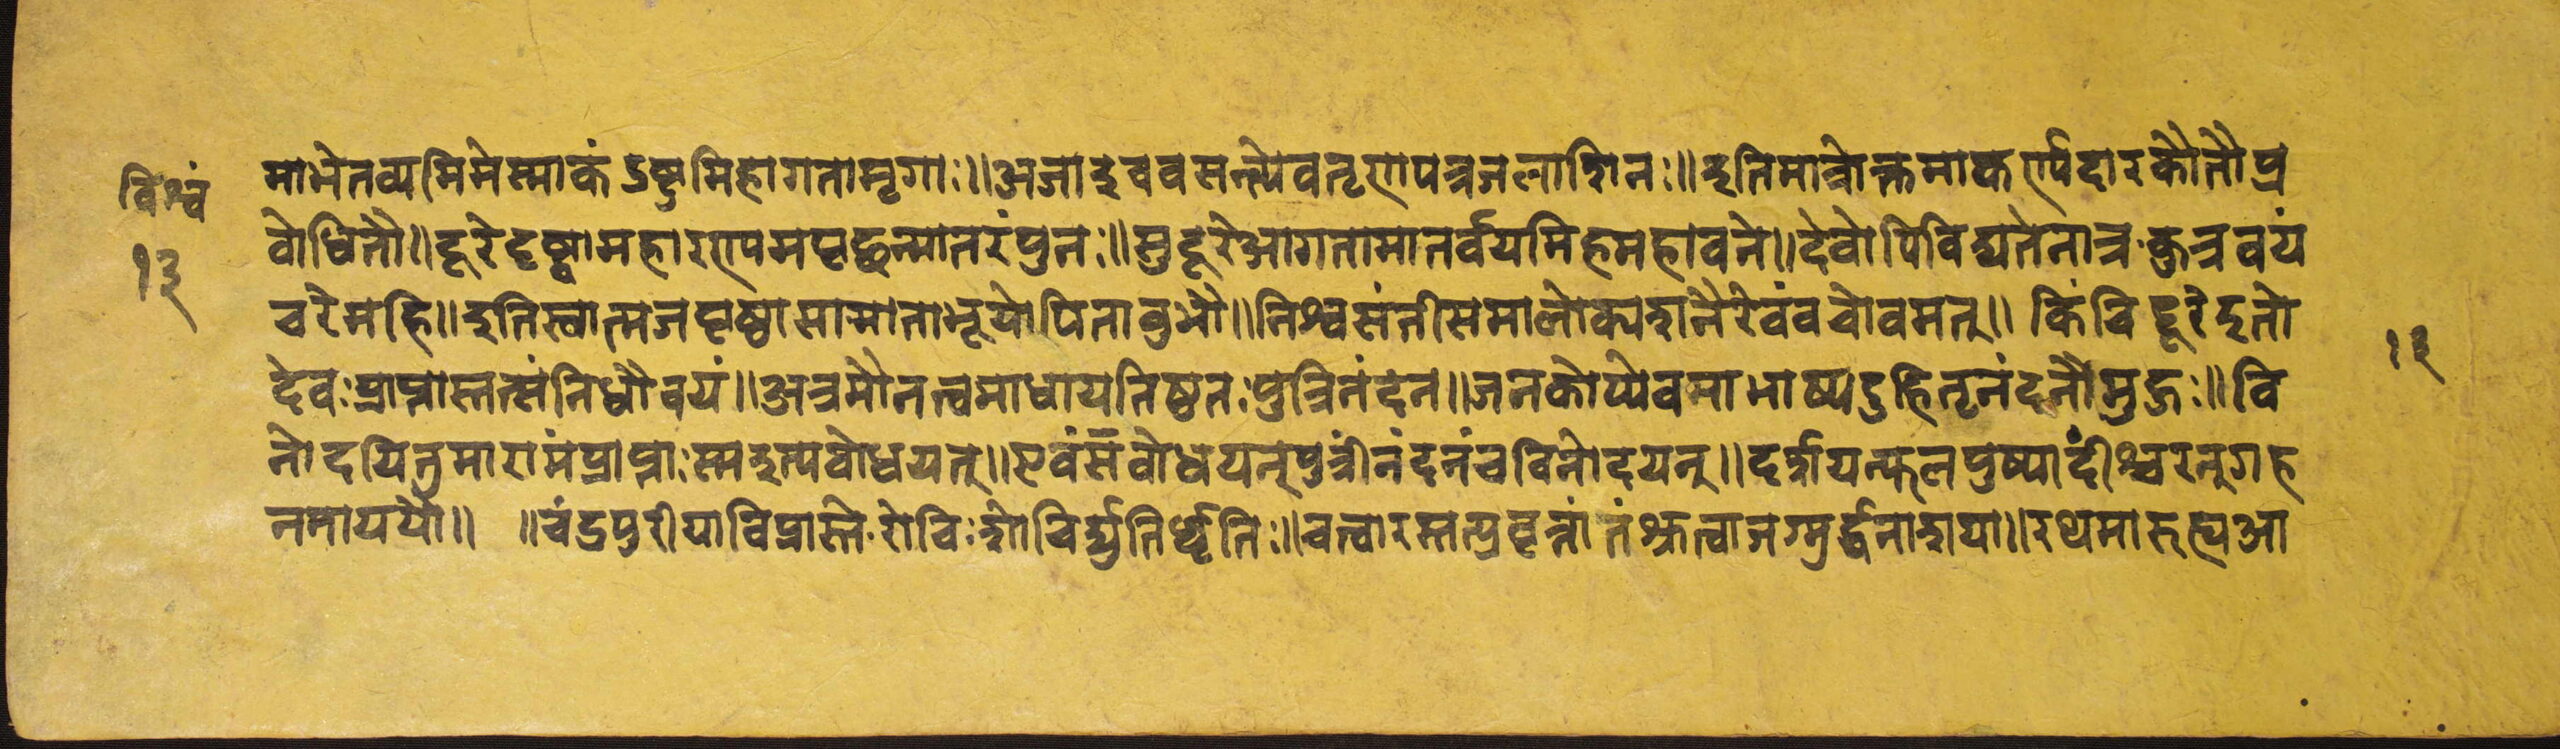 विश्वं
१३
माभेतव्यमिमेस्माकं दुष्टुमिहागतामृगाः॥अजाइववसन्त्येवतृणपत्रजलाशिनः॥इतिमात्रोक्तमाकर्ण्यदारकौतौप्र
बोधितौ॥दूरेदृष्ट्वामहारण्यमपृछन्मातरंपुनः॥सुदूरेआगतामातर्वयमिहमहावने॥देवोपिविद्यतेनात्रकुत्रवयं
चरेमहि॥इतिस्वात्मजपृष्ठासामाताभूयोपितावुभौ॥निश्वसंतीसमालोक्यशनैरेवंवचोवमत्॥ किंचिद्दूरेइतो
देवःप्राप्तास्तत्संनिधौवयं॥अत्रमौनत्वमाधायतिष्ठतःपुत्रिनंदन॥जनकोप्येवमाभाष्यदुहितृनंदनौमुहुः॥वि
नोदयितुमारामंप्राप्ताःस्मइत्यबोधयत्॥एवंसंबोधयन्पुत्रींनंदनंचविनोदयन्॥दर्शयन्फलपुष्पादींश्चरन्गह
नमाययौ॥ ॥चंद्रपुरीयाविप्रास्ते रोविःशोचिर्द्युतिर्धृतिः॥चत्वारस्तत्प्रवृत्तांतंश्रुत्वाजग्मुर्द्धनाशया॥रथमारुह्यआ
१३